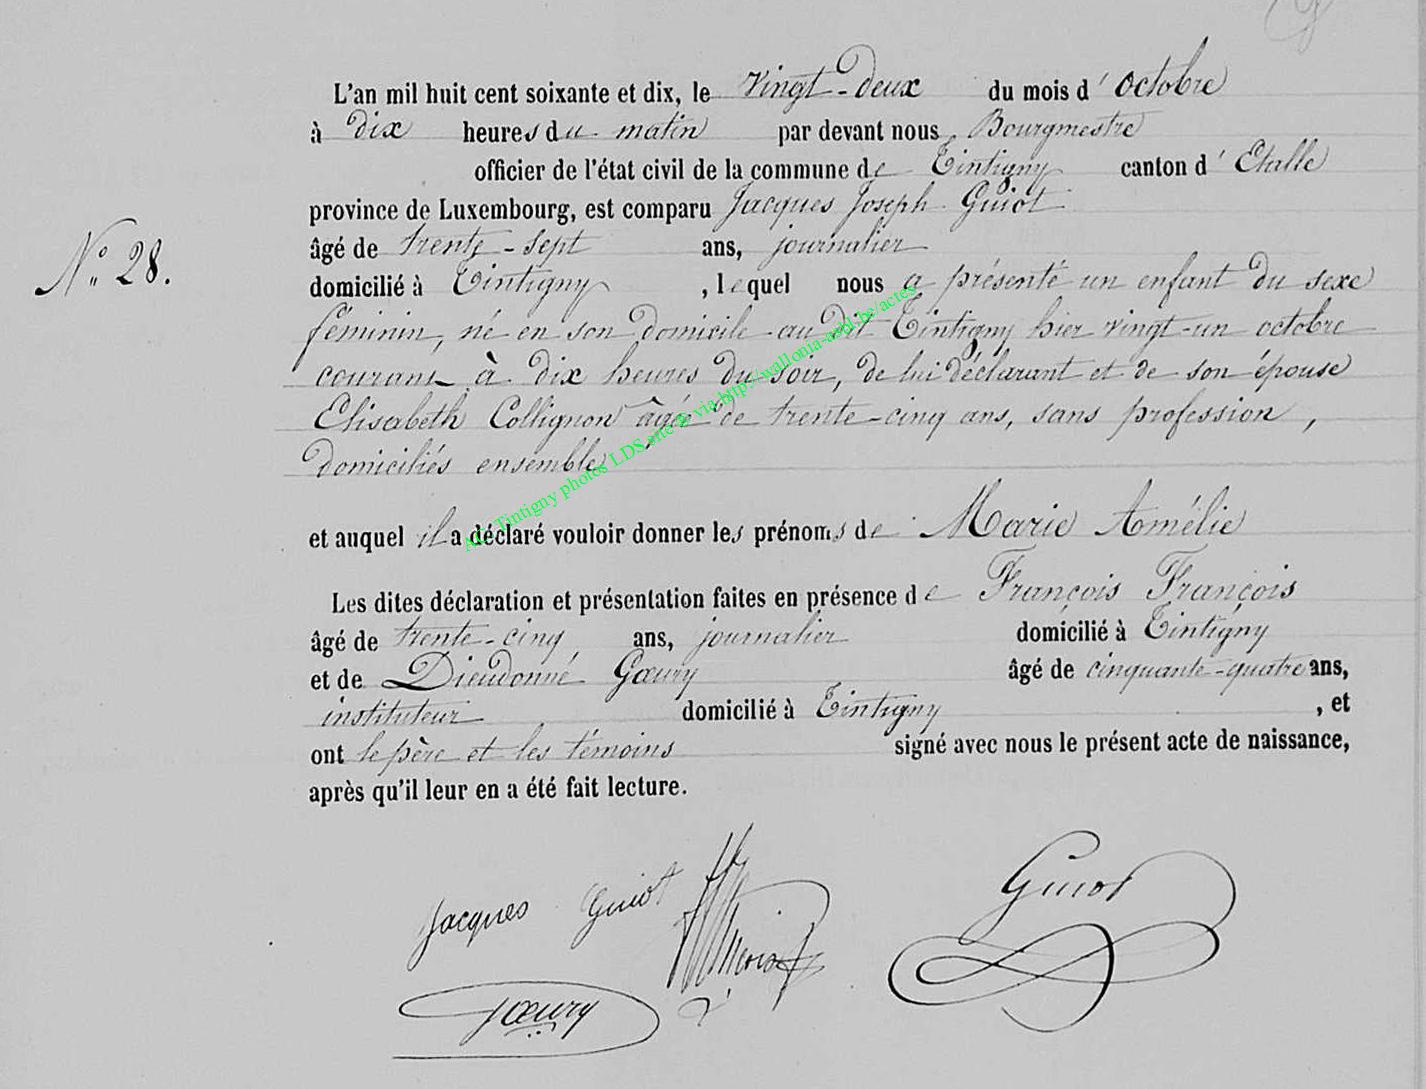 L'an mil huit cent soixante et dix, le vingt-deux du mois d'octobre
à dix heures du matin par devant nous Bourgmestre
officier de l'état civil de la commune de Tintigny canton d'Etalle
province de Luxembourg, est comparu Jacques Joseph Guiot
N° 28.
âgé de trente-sept ans, journalier
domicilié à Tintigny, lequel nous a présenté un enfant du sexe
féminin, né en son domicile au dit Tintigny hier vingt-un octobre
courant à dix heures du soir, de lui déclarant et de son épouse
Elisabeth Collignon âgée de trente-cinq ans, sans profession,
domiciliés ensemble
AC Tintigny photos LDS via http://wallonia-asbl.be/actes
et auquel il a déclaré vouloir donner les prénoms de Marie Amélie
Les dites déclaration et présentation faites en présence de François François
âgé de trente-cinq ans, journalier domicilié à Tintigny
et de Dieudonné Gœury âgé de cinquante-quatre ans,
instituteur domicilié à Tintigny, et
ont le père et les témoins signé avec nous le présent acte de naissance,
après qu'il leur en a été fait lecture.
Jacques Guiot
Guiot
Gœury